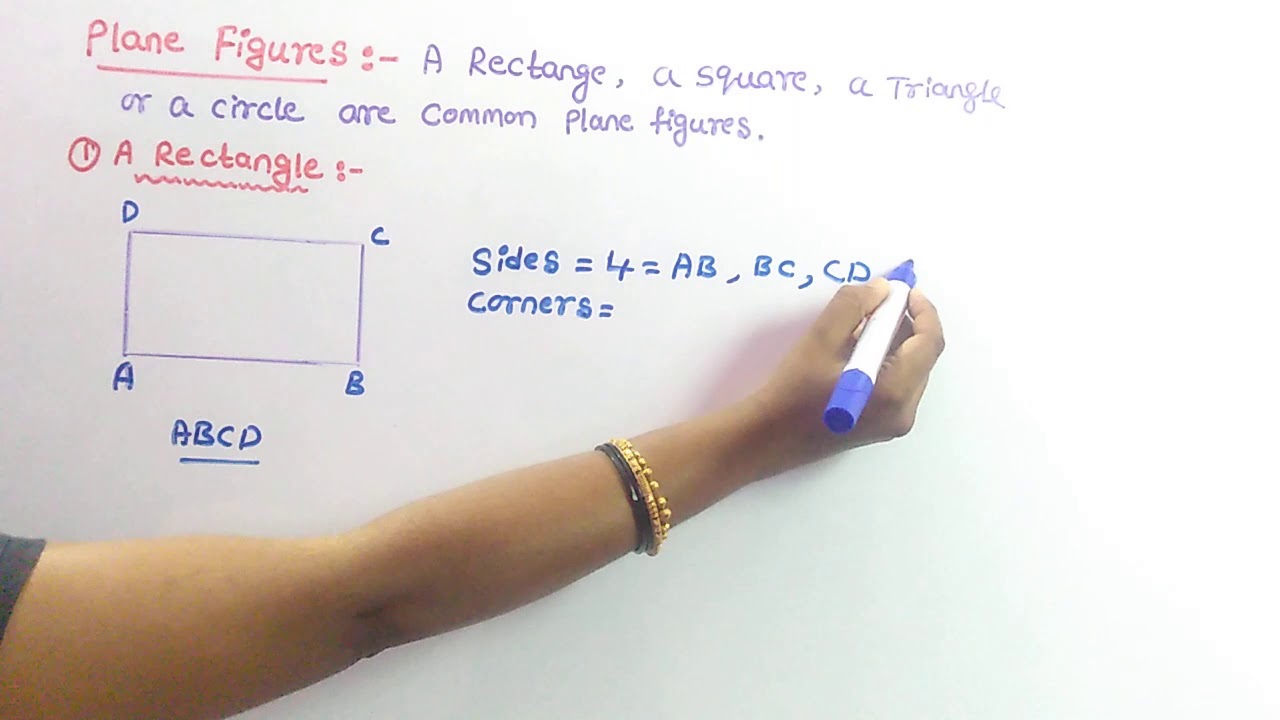 Plane Figures :- A Rectange, a square, a Triangle
or a circle are Common Plane figures.
① A Rectangle :-
D
C
Sides = 4 = AB, BC, CD
Corners =
A
B
ABCD